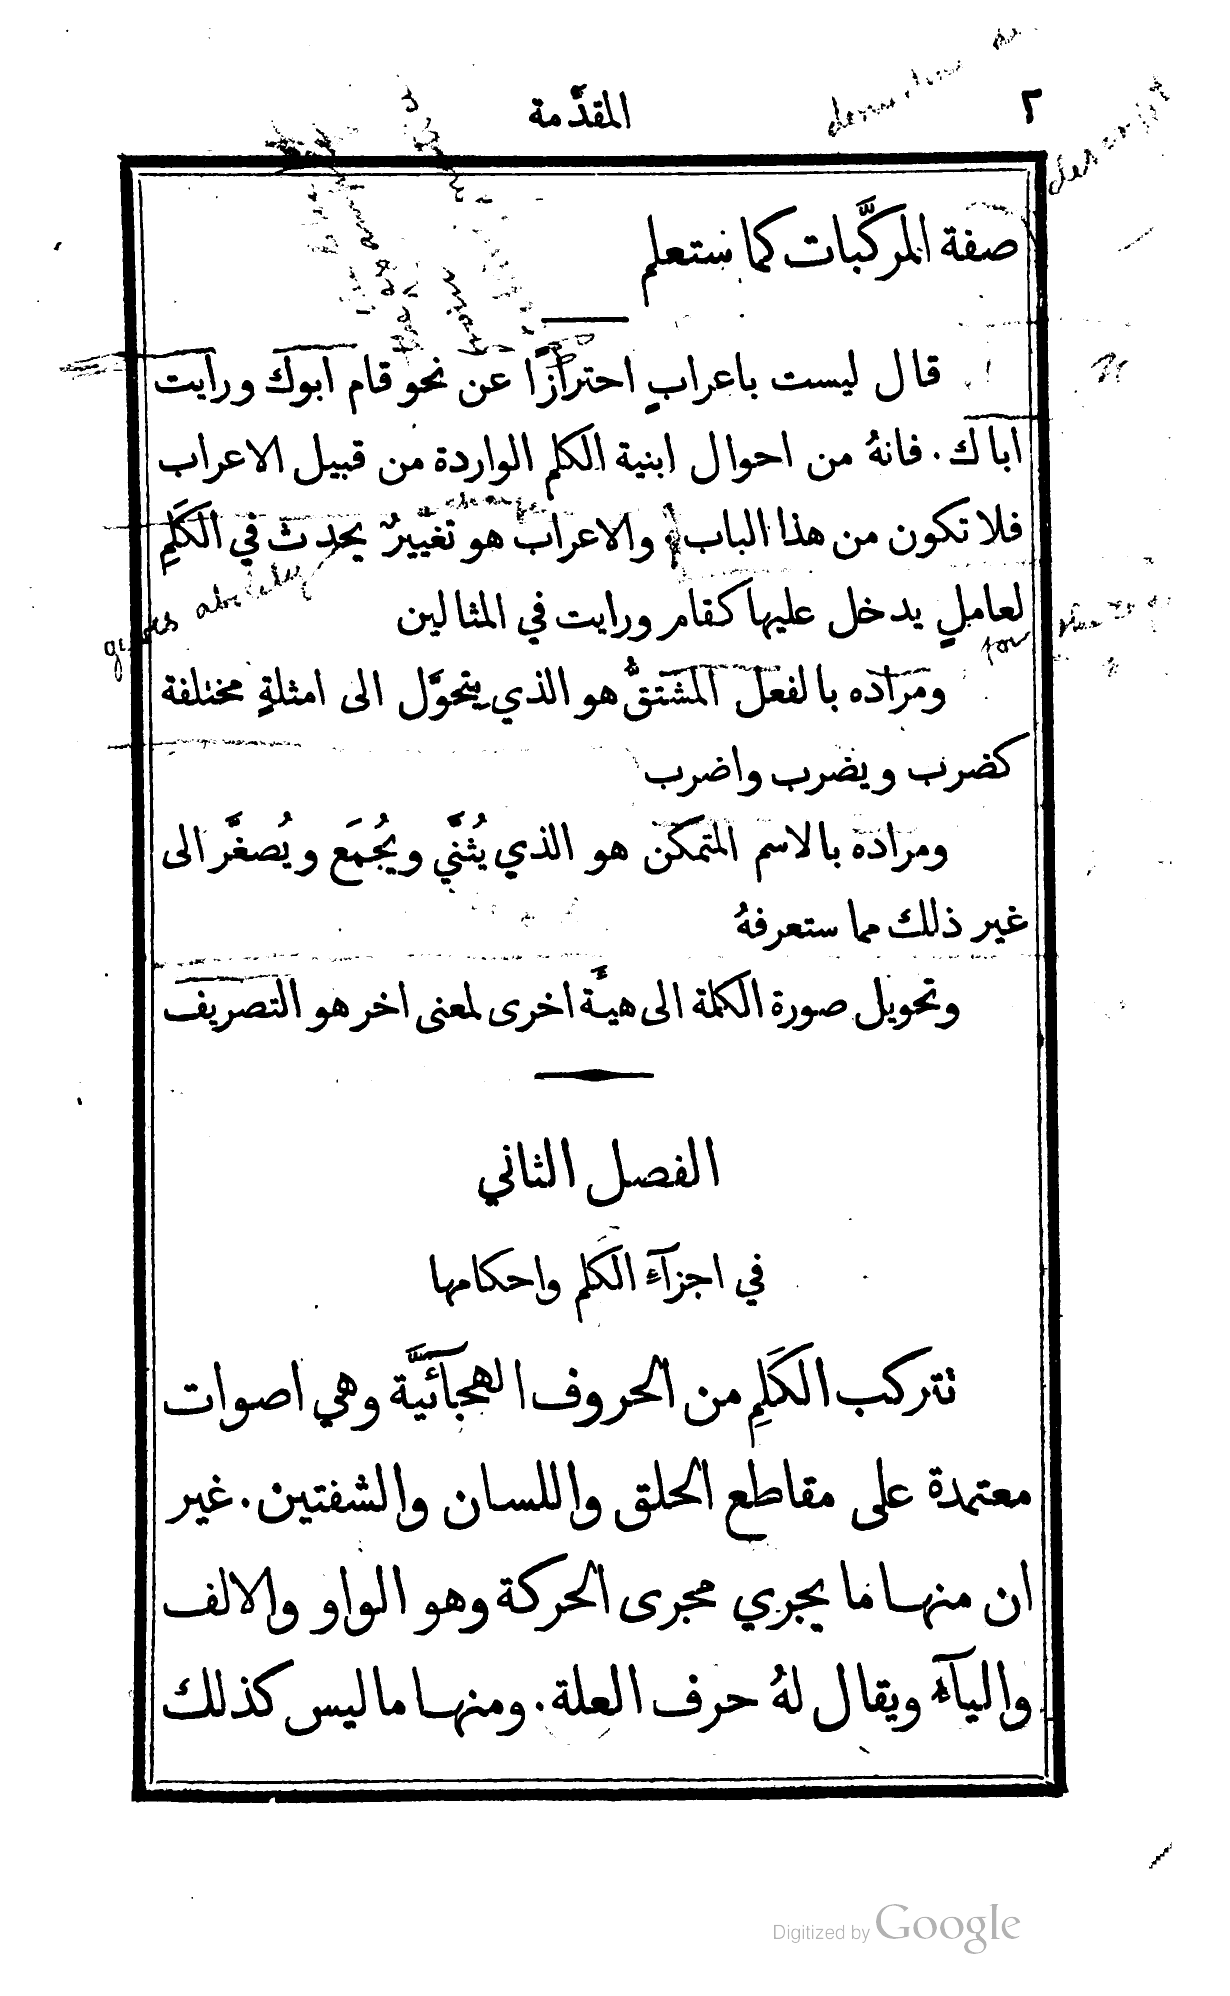 ٢
المقدَّمة
صفة المركَّبات كما ستعلم
قال ليست باعرابٍ احترازًا عن نحو قام ابوك ورايت
اباك . فانهُ من احوال ابنية الكلم الواردة من قبيل الاعراب
فلا تكون من هذا الباب . والاعراب هو تغييرٌ يحدث في الكَلِمِ
لعاملٍ يدخل عليها كقام ورايت في المثالين
ومراده بالفعل المشتقِّ هو الذي يتحوَّل الى امثلةٍ مختلفة
كضرب ويضرب واضرب
ومراده بالاسم المتمكن هو الذي يُثنَّي ويُجمَع ويُصغَّر الى
غير ذلك مما ستعرفهُ
وتحويل صورة الكلمة الى هيئَة اخرى لمعنى اخر هو التصريف
الفصل الثاني
في اجزآءِ الكلم واحكامها
تتركب الكَلِمِ من الحروف الهجآئيَّة وهي اصوات
معتمدة على مقاطع الحلق واللسان والشفتين . غير
ان منها ما يجري مجرى الحركة وهو الواو والالف
واليآءُ ويقال لهُ حرف العلة . ومنها ما ليس كذلك
for
Digitized by Google